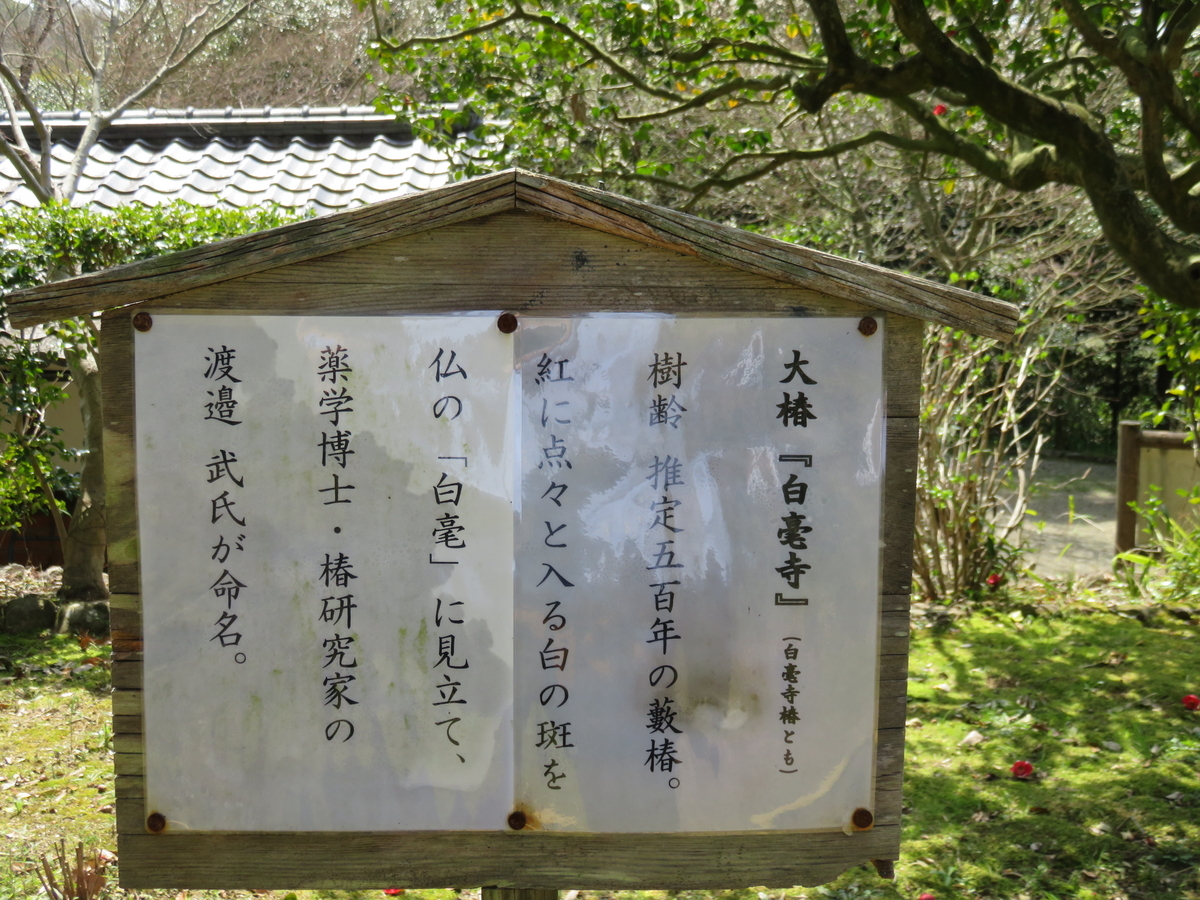 大椿『白毫寺』（白毫寺椿とも）
樹齢 推定五百年の藪椿。
紅に点々と入る白の斑を
仏の「白毫」に見立て、
薬学博士・椿研究家の
渡邉 武氏が命名。